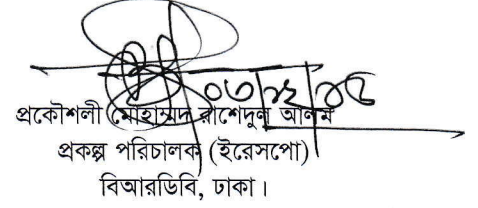 ০৩/১২/২৫
প্রকৌশলী মোহাম্মদ রাশেদুল আলম
প্রকল্প পরিচালক (ইরেসপো)
বিআরডিবি, ঢাকা।